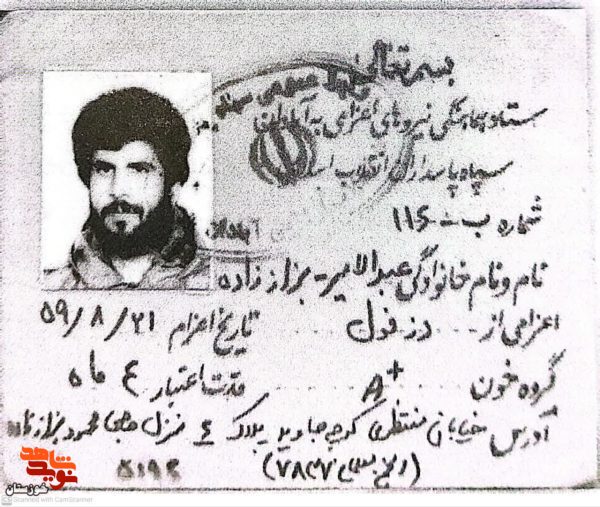 بسمه تعالی
ستاد هماهنگی نیروهای اعزامی به آبادان
سپاه پاسداران انقلاب اسلامی
شماره ب - ۱۱۶۰
نام و نام خانوادگی عبدالامیر - بزاز زاده
اعزامی از ... دزفول ... تاریخ اعزام ۵۹/۸/۲۱
گروه خون A+ مدت اعتبار ۴ ماه
آدرس خیابان منتظری کوچه جاوید پلاک ۶ منزل حاجی محمود بزاززاده
۵۱۹۶ (۷۸۳۷)
نوید شاهد
خوزستان
CS Scanned with CamScanner